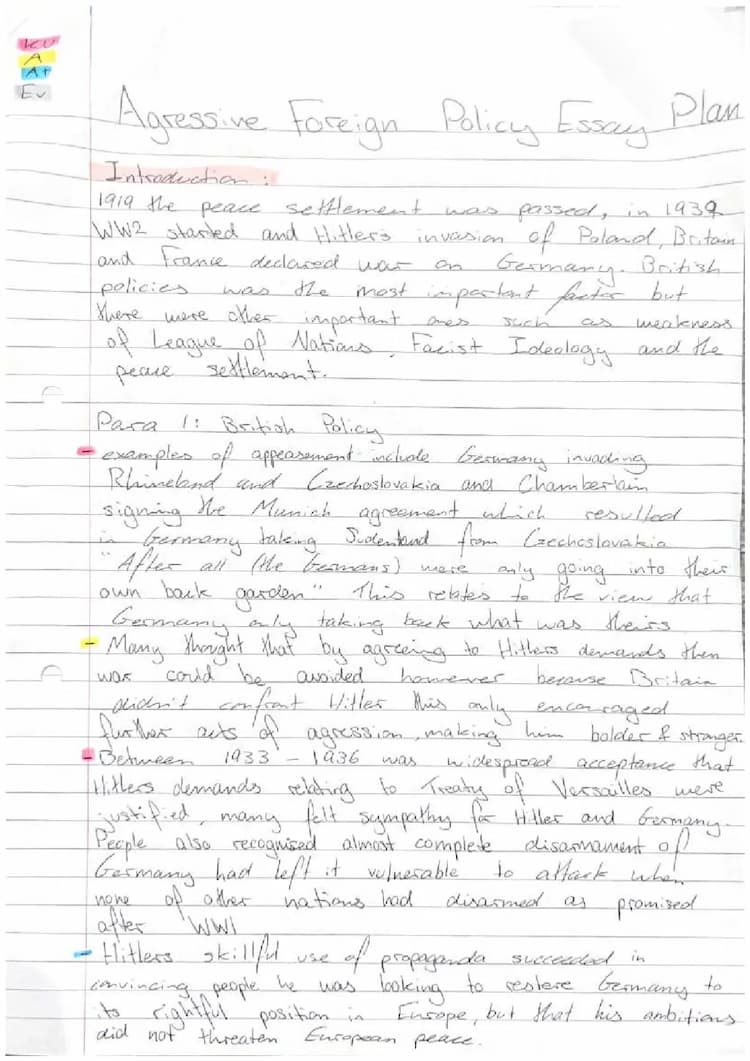 KU
A
A+
Ev
Agressive Foreign Policy Essay Plan
Introduction :
1919 the peace settlement was passed, in 1939
WW2 started and Hitlers invasion of Poland, Britain
and France declared war on Germany. British
policies was the most important factor but
there were other important ones such as weakness
of League of Nations, Facist Ideology and the
peace settlement.
Para 1: British Policy
- examples of appeasement include Germany invading
Rhineland and Czechoslovakia and Chamberlain
signing the Munich agreement which resulted
in Germany taking Sudenland from Czechoslovakia
"After all (the Germans) were only going into their
own back garden" This relates to the view that
Germany only taking back what was theirs
- Many thought that by agreeing to Hitlers demands then
war could be avoided however because Britain
didn't confront Hitler this only encouraged
further acts of agression, making him bolder & stronger.
- Between 1933 - 1936 was widespread acceptance that
Hitlers demands relating to Treaty of Versailles were
justified, many felt sympathy for Hitler and Germany.
People also recognised almost complete disarmament of
Germany had left it vulnerable to attack when
none of other nations had disarmed as promised
after WW1
- Hitlers skillful use of propaganda succeeded in
convincing people he was looking to restore Germany to
its rightful position in Europe, but that his ambitions
did not threaten European peace.